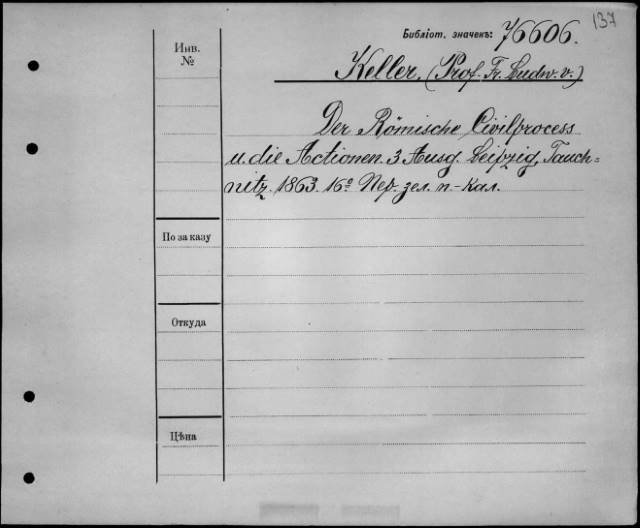 137
Библіот. значекъ: 76606.
Инв.
№
Keller. (Prof. Fr. Ludw. v.)
Der Römische Civilprocess
u. die Actionen. 3 Ausg. Leipzig, Tauch=
nitz. 1863. 16º Пер. зел. п.-кал.
По заказу
Откуда
Цѣна